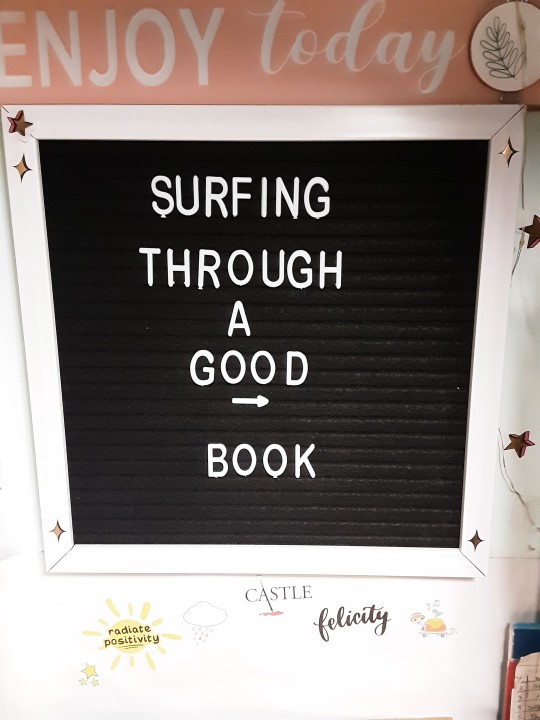 ENJOY today
SURFING
THROUGH
A
GOOD
→
BOOK
CASTLE
felicity
radiate
positivity